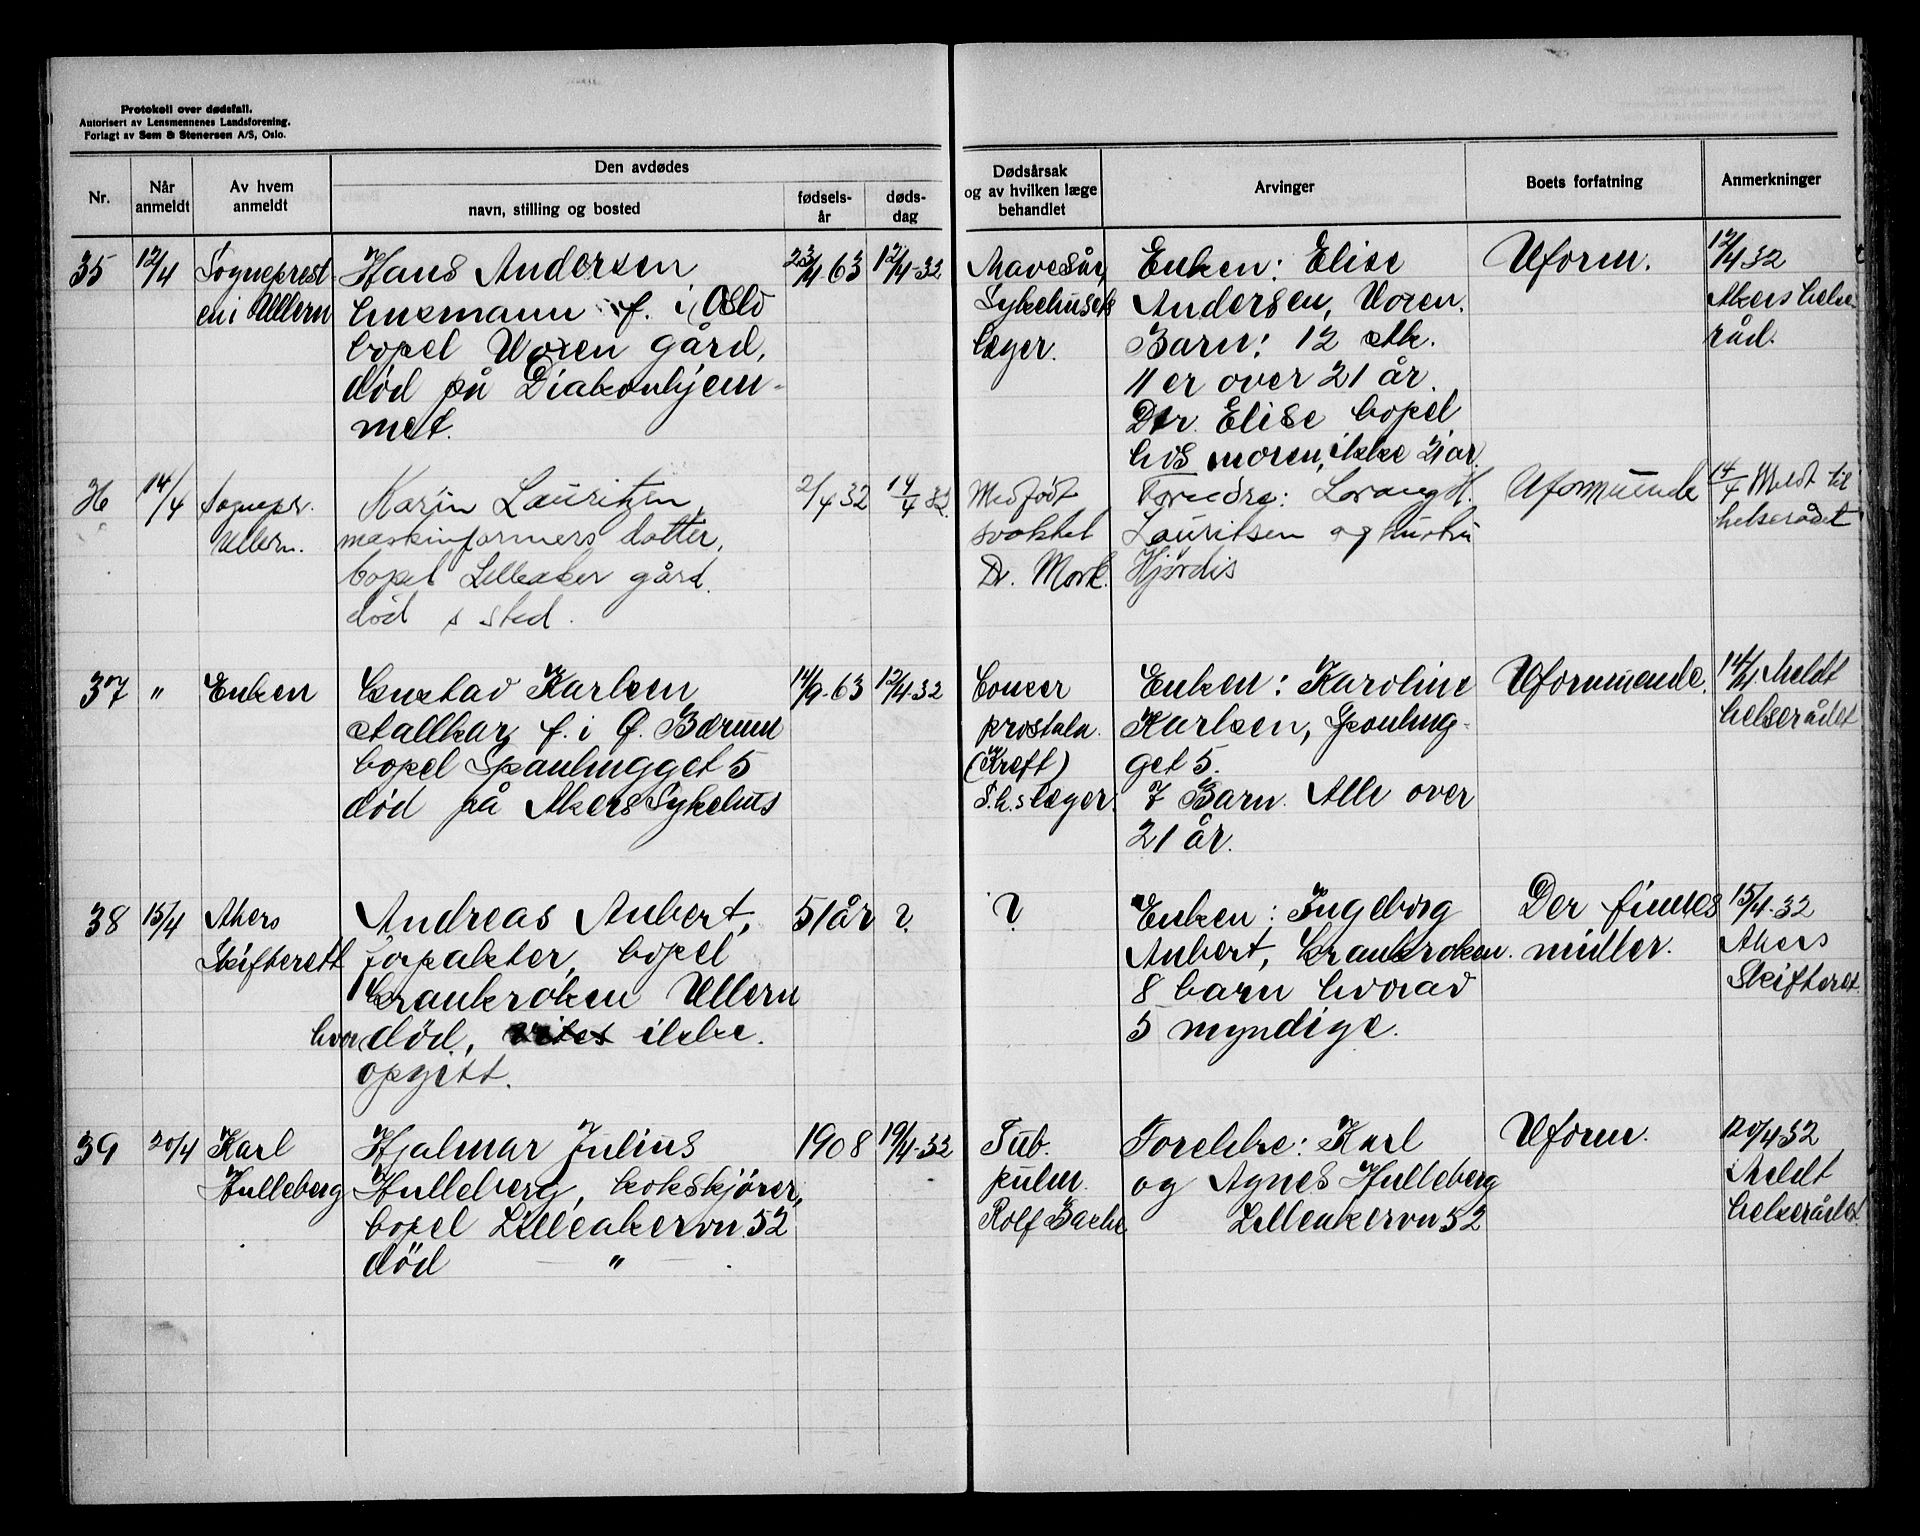 Protokoll over dødsfall.
Autorisert av Lensmennenes Landsforening.
Forlagt av Sem & Stenersen A/S, Oslo.
Nr.
Når anmeldt
Av hvem anmeldt
Den avdødes
navn, stilling og bosted
fødsels-år
døds-dag
Dødsårsak og av hvilken læge behandlet
Arvinger
Boets forfatning
Anmerkninger
35
12/4
Sogneprest
en i Ullern
Hans Andersen
husmann f. i Oslo
bopel Voxen gård,
død på Diakonhjem-
met.
23/4 63
12/4-32
Mavesår
Sykehusets
læger.
Enken: Elise
Andersen, Voxen.
Barn: 12 stk.
11 er over 21 år.
Dtr. Elise bopel
hos moren, ikke 21 år.
Uform.
12/4 32
Akers helse-
råd.
36
14/4
Sognepr.
Ullern.
Karin Lauritzen,
maskinformers datter,
bopel Lilleaker gård.
død s sted.
2/4 32
14/4 32.
Medfødt
svakhet
Dr. Mork.
Foreldre: Lorang H.
Lauritsen og hustru
Hjørdis
Uformuende
14/4 Meldt til
helserådet
37
"
Enken
Gustav Karlsen
stallkar, f. i Ø. Bærum
bopel Spanhugget 5
død på Akers Sykehus
14/9-63
12/4-32
Cancer
prostata.
(Kreft)
S.h.s læger.
Enken: Karoline
Karlsen, Spanhug-
get 5.
7 Barn. Alle over
21 år.
Uformuende.
14/4 Meldt
helserådet
38
15/4
Akers
Skifterett
Andreas Aubert,
forpakter, bopel
Grankroken Ullern
hvor død, ikke
opgitt.
51 år
?
?
Enken: Ingeborg
Aubert, Grankroken.
8 barn hvorav
5 myndige.
Der finnes
midler.
15/4-32
Akers
Skifteret.
39
20/4
Karl
Hulleberg
Hjalmar Julius
Hulleberg, kokskjører,
bopel Lilleakervn. 52
død — " —.
1908
19/4-32
Tub.
pulm.
Rolf Bache
Foreldre: Karl
og Agnes Hulleberg
Lilleakervn 52
Uform.
20/4 32
Meldt
helserådet